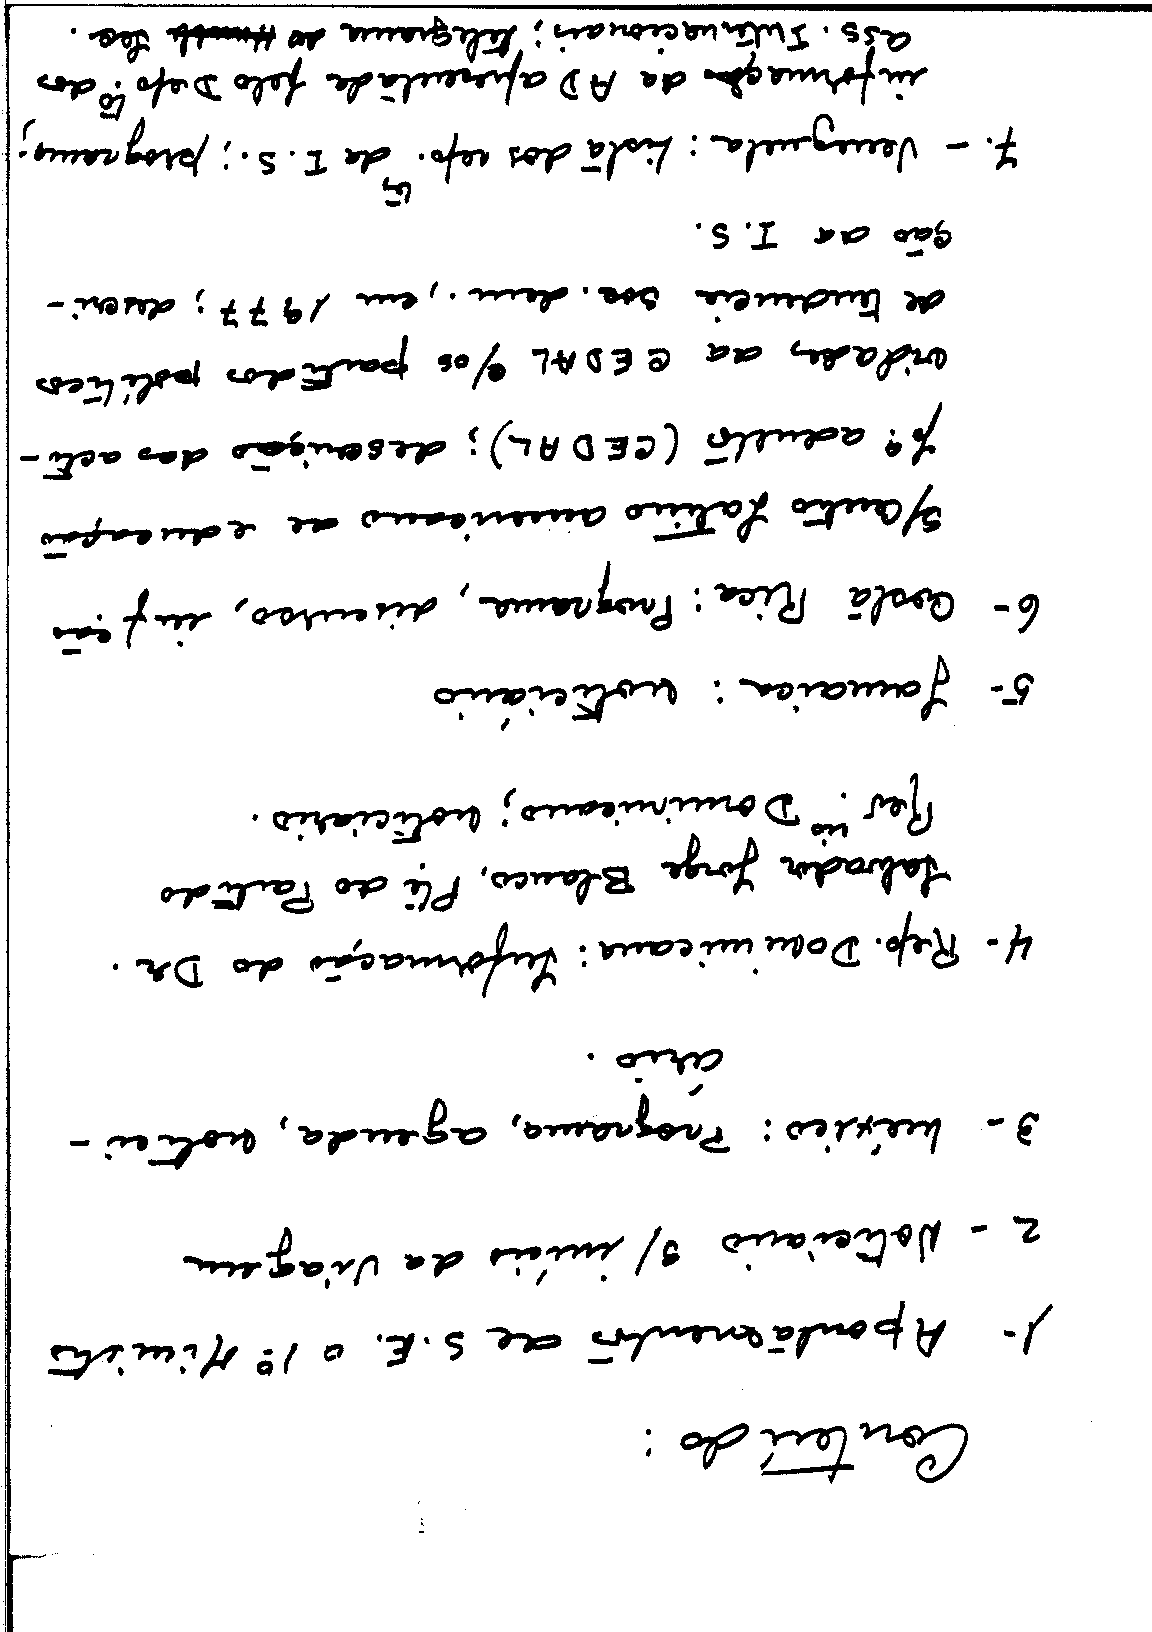 Conteúdo :
1- Apontamentos de S.E. o 1º Ministro
2 - Noticiario s/ início da viagem
3 - México : Programa, agenda, notici-
ário .
4 - Rep. Dominicana : Informação do Dr.
Salvador Jorge Blanco, Pte do Partido
Rev.rio Dominicano ; noticiario .
5 - Jamaica : noticiário
6 - Costa Rica : Programa, discurso, inf.ção
s/ Centro Latino americano de educação
pª. adultos (CEDAL) ; descrição das acti-
vidades da CEDAL c/ os partidos políticos
de tendencia soc. dem., em 1977 ; descri-
ção da I.S.
7. - Venezuela : Lista dos rep.tes da I.S. ; programa ;
informação da AD apresentada pelo Dep.to dos
Ass. Internacionais ; telegrama do